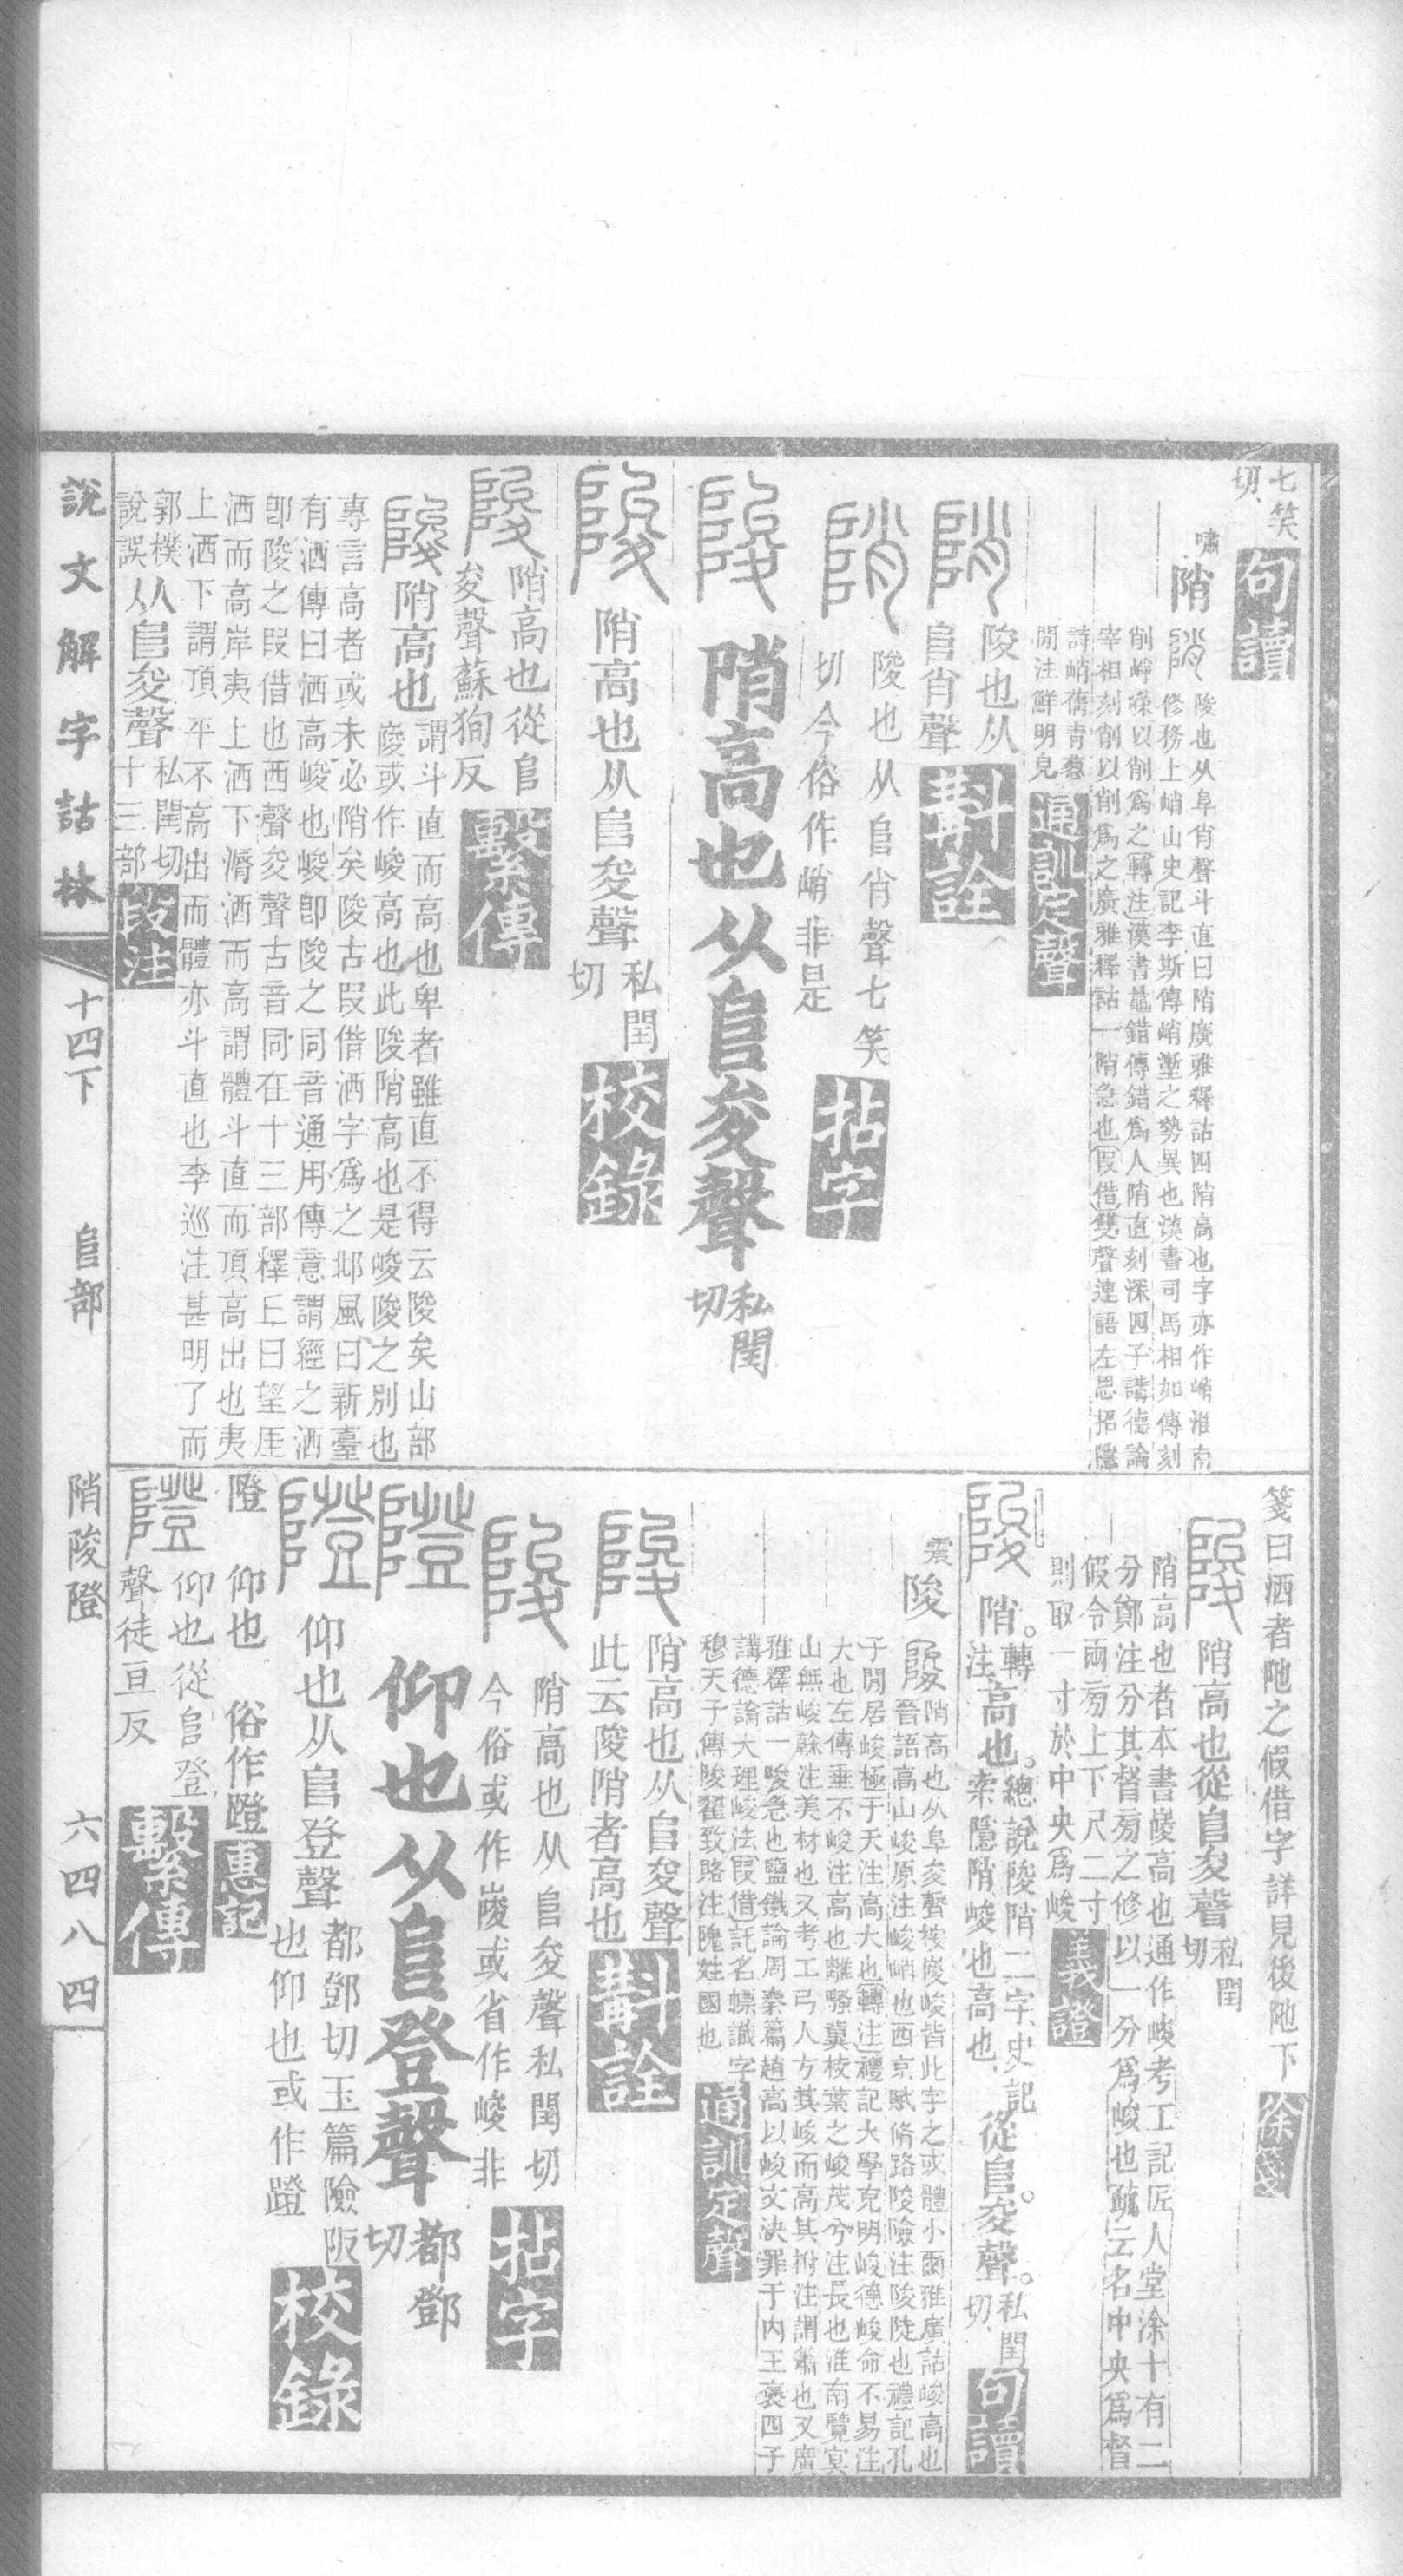 七笑
切
句讀
嘯
陗
陵也从阜肖聲斗直曰陗廣雅釋詁四陗高也字亦作峭淮南
修務上峭山史記李斯傳峭壍之勢異也漢書司馬相如傳刻
削崢嶸以削爲之轉注漢書鼂錯傳錯爲人陗直刻深四子講德論
宰相刻削以削爲之廣雅釋詁一陗急也叚借雙聲連語左思招隱
詩峭蒨青蔥
閒注鮮明皃
通訓定聲
陖也从
𨸏肖聲
斠詮
陖也从𨸏肖聲七笑
切今俗作峭非是
拈字
陗高也从𨸏夋聲
私閏
切
陗高也从𨸏夋聲
私閏
切
校錄
陗高也從𨸏
夋聲蘇徇反
繫傳
陗高也
謂斗直而高也卑者雖直不得云陖矣山部
㕙或作峻高也此陖陗高也是峻陖之別也
專言高者或未必陗矣陖古叚借洒字爲之邶風曰新臺
有洒傳曰洒高峻也峻卽陖之同音通用傳意謂經之洒
卽陖之叚借也西聲夋聲古音同在十三部釋丘曰望厓
洒而高岸夷上洒下漘洒而高謂體斗直而頂高出也夷
上洒下謂頂平不高出而體亦斗直也李巡注甚明了而
郭樸
說誤
从𨸏夋聲
私閏切
十三部
段注
箋曰洒者阤之假借字詳見後阤下
徐箋
陗高也從𨸏夋聲
私閏
切
陗高也者本書㟬高也通作峻考工記匠人堂涂十有二
分鄭注分其督㫄之修以一分爲峻也疏云名中央爲督
假令兩㫄上下尺二寸
則取一寸於中央爲峻
義證
陗
轉
注
高也
總說陖陗二字史記
索隱陗峻也高也
從𨸏夋聲
私閏
切
句讀
震
陖
陗高也从阜夋聲按㟬峻皆此字之或體小爾雅廣詁峻高也
晉語高山峻原注峻峭也西京賦脩路陖險注陖陡也禮記孔
子閒居峻極于天注高大也轉注禮記大學克明峻德峻命不易注
大也左傳垂不峻注高也離騷冀枝葉之峻茂兮注長也淮南覽冥
山無峻榦注美材也又考工弓人方其峻而高其柎注謂簫也又廣
雅釋詁一陖急也鹽鐵論周秦篇趙高以峻文決罪于內王襃四子
講德論大理峻法叚借託名幖識字
穆天子傳陖翟致賂注隗姓國也
通訓定聲
陗高也从𨸏夋聲
此云陖陗者高也
斠詮
陗高也从𨸏夋聲私閏切
今俗或作㟬或省作峻非
拈字
仰也从𨸏登聲
都鄧
切
仰也从𨸏登聲
都鄧切玉篇險阪
也仰也或作蹬
校錄
隥 仰也 俗作蹬
惠記
仰也從𨸏登
聲徒亘反
繫傳
說文解字詁林
十四下
𨸏部
陗陖隥
六四八四